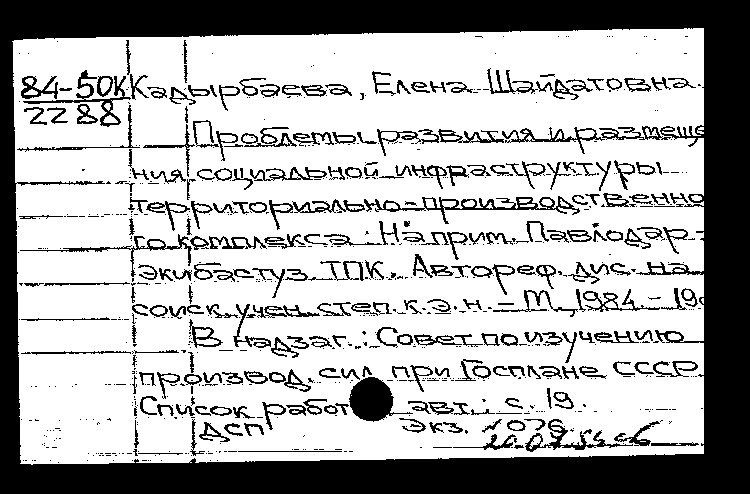 84-50К Кадырбаева, Елена Шайдатовна.
2288
Проблемы развития и размеще
ния социальной инфраструктуры
территориально-производственно
го комплекса : На прим. Павлодар-
экибастуз. ТПК. Автореф. дис. на
соиск. учен. степ. к.э.н. - М., 1984. - 19
В надзаг.: Совет по изучению
производ. сил при Госплане СССР.
Список работ авт.: с. 19.
ДСП Экз. N 076